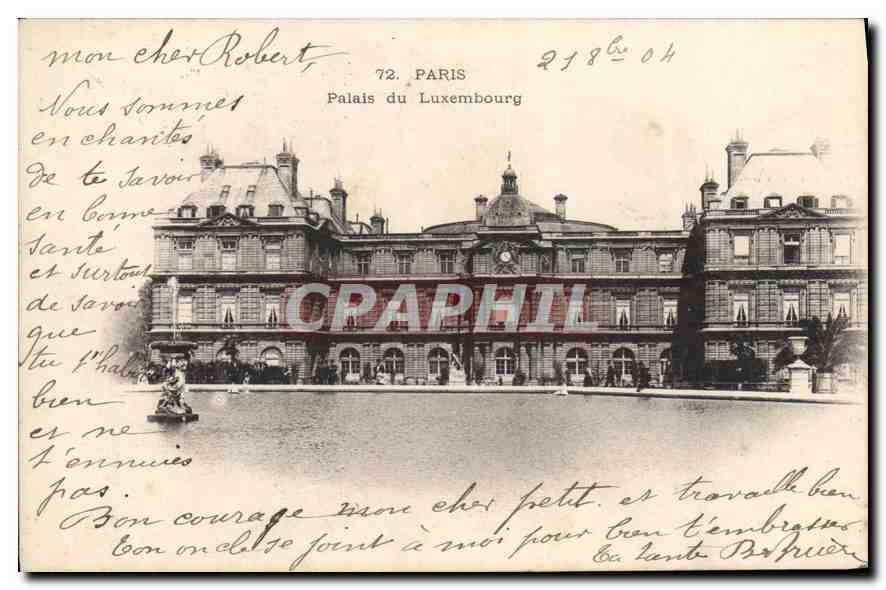 mon cher Robert,
21 8bre 04
72. PARIS
Palais du Luxembourg
Nous sommes
en chantés
de te savoir
en bonne
santé
et surtout
de savoir
que
tu t'habi
bien
et ne
t'ennuies
pas.
CPARHIL
Bon courage mon cher petit et travaille bien
Ton oncle se joint à moi pour bien t'embrasser
Ta tante